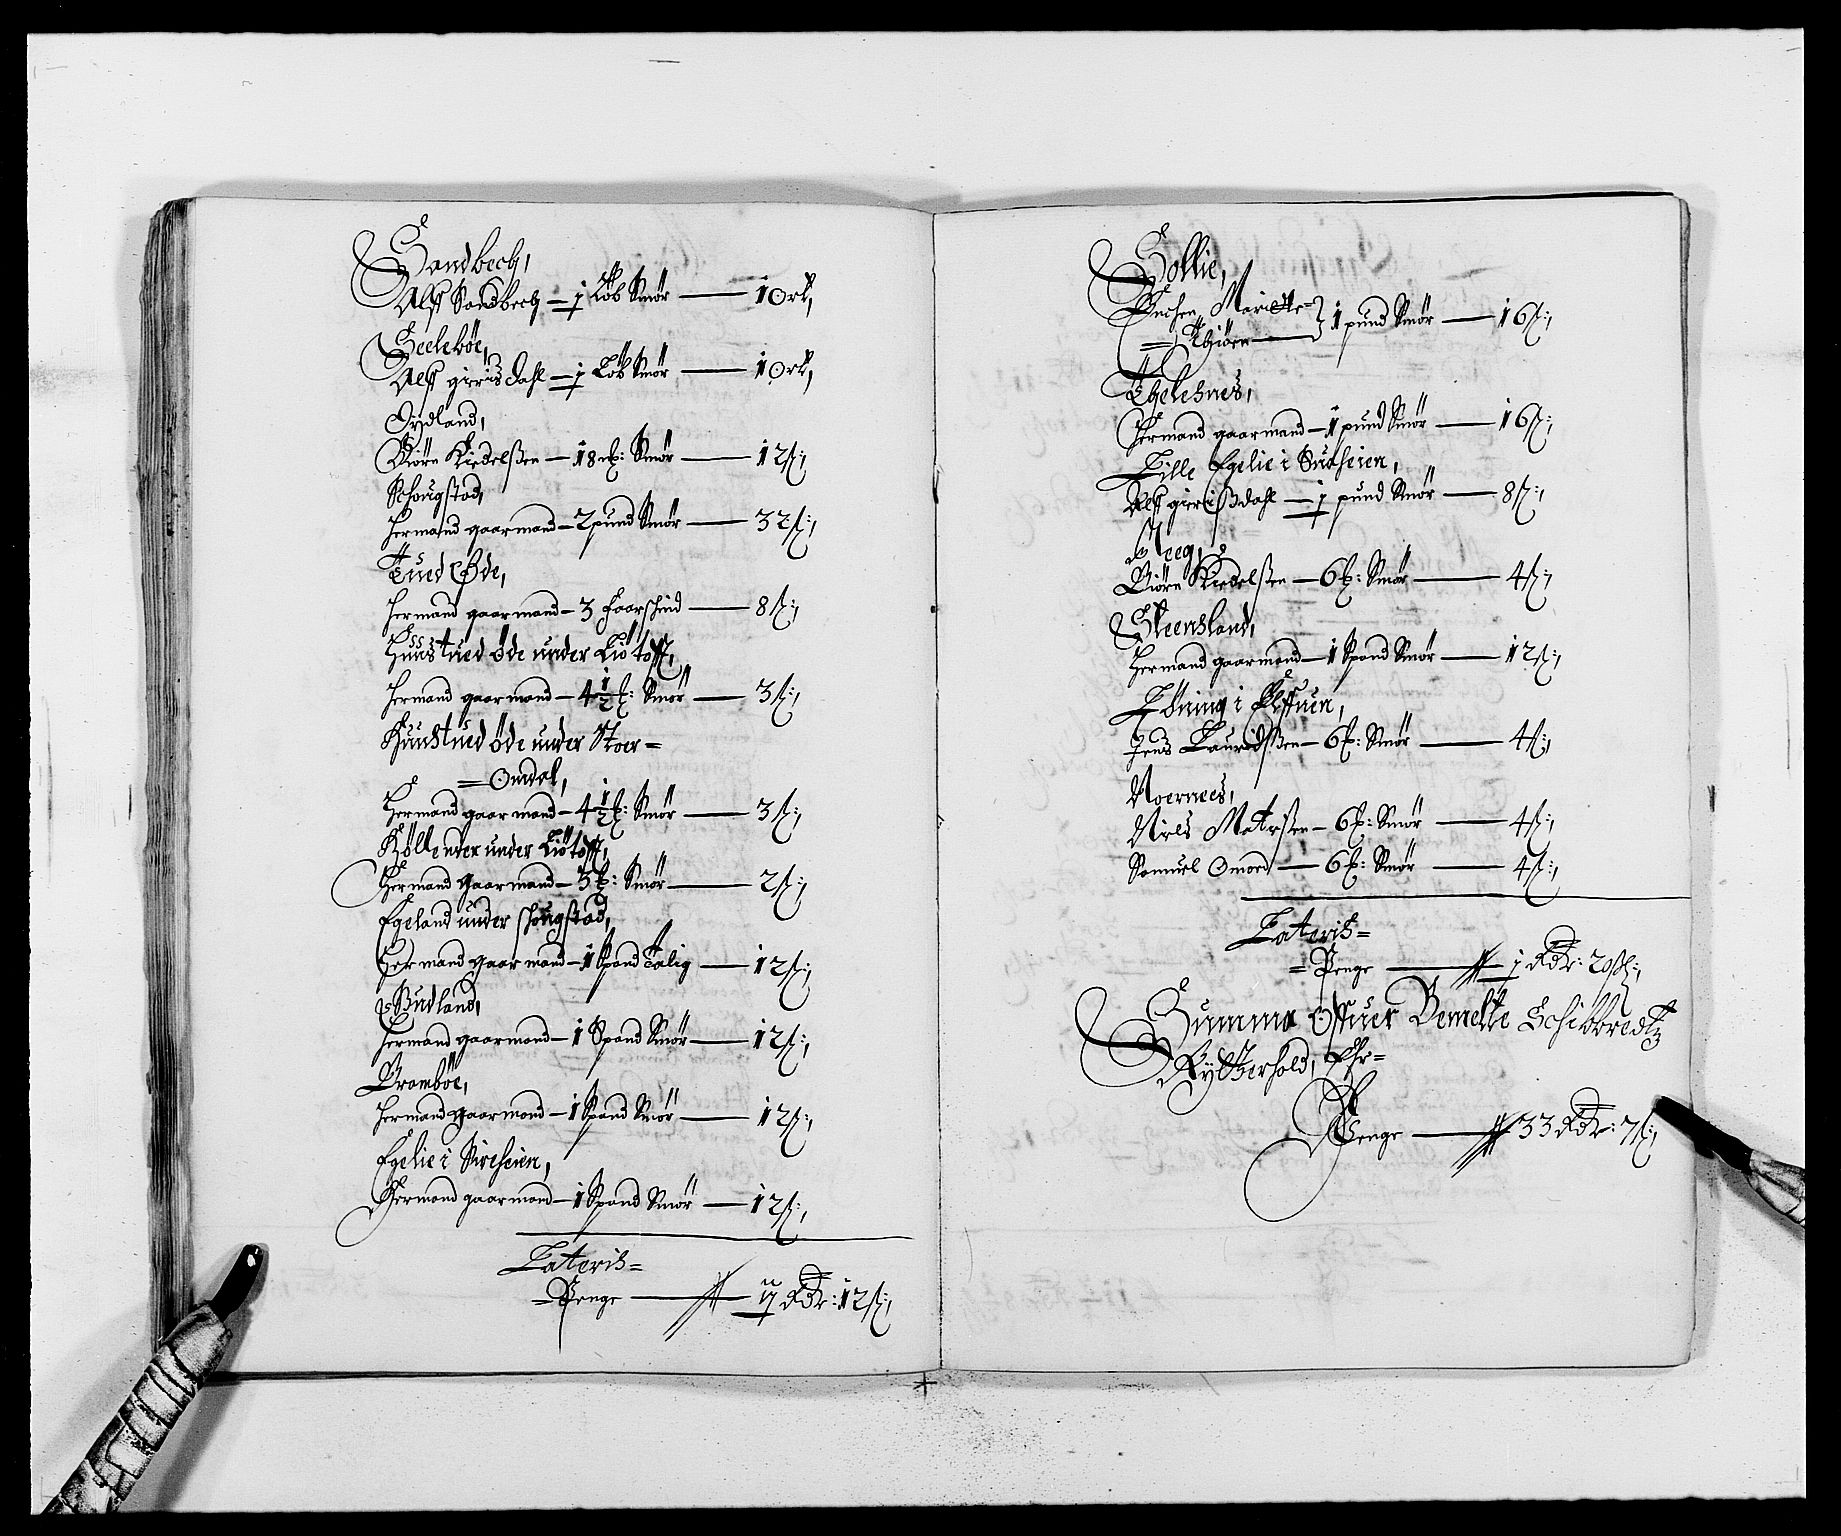 Sandbeck,
Alff Sandbeck – ½ Løb Smör – 1 Ort,
Seelebøe,
Alff gierisdahl – ½ Løb Smör – 1 Ort,
Oÿdland,
Biørn Kiedelßen – 18 m̶: Smör – 12 ß:,
Schougstad,
Hermand gaarmand – 2 pund Smör – 32 ß:,
Tued Øde,
Hermand gaarmand – 3 Faarschind – 8 ß:,
Huustued Øde under Liötofft,
Hermand gaarmand – 4½ ℔: Smör – 3 ß:,
Huustued øde under Stoer=
=Omdal,
Hermand gaarmand – 4½ ℔: Smör – 3 ß:,
Kölle under Liötofft,
Hermand gaarmand – 3 ℔: Smör – 2 ß:,
Egeland under schougstad,
Hermand gaarmand – 1 Spand Talig – 12 ß:,
Budland,
Hermand gaarmand – 1 Spand Smör – 12 ß:,
Bramböe,
Hermand gaarmand – 1 Spand Smör – 12 ß:,
Egelie i Sireheien,
Hermand gaarmand – 1 Spand Smör – 12 ß:,
Lateris=
=Penge – Rdr: 12 ß:,
Sollie,
Enchen Mariette=
= Thiören – 1 pund Smör – 16 ß:,
Egelesnes,
Hermand gaarmand – 1 pund Smör – 16 ß:,
Lille Egelie i Suaheien,
Alff gierißdahl – ½ pund Smör – 8 ß:,
Reeg,
Biörn Kiedelßen – 6 ℔: Smör – 4 ß:,
Steensland,
Hermand gaarmand – 1 Spand Smör – 12 ß:,
Löning i Elffuen,
Jens Lauridßen – 6 ℔: Smör – 4 ß:,
Noernees,
Niels Matzßen – 6 ℔: Smör – 4 ß:,
Samuel Omoed – 6 ℔: Smör – 4 ß:,
Lateris=
=Penge – 1 Rdr: 20 ß:,
Summa Offuer Bemelte Schibbredtz
Rytterhold, Ehr=
Penge – 33 Rdr: 7 ß:,